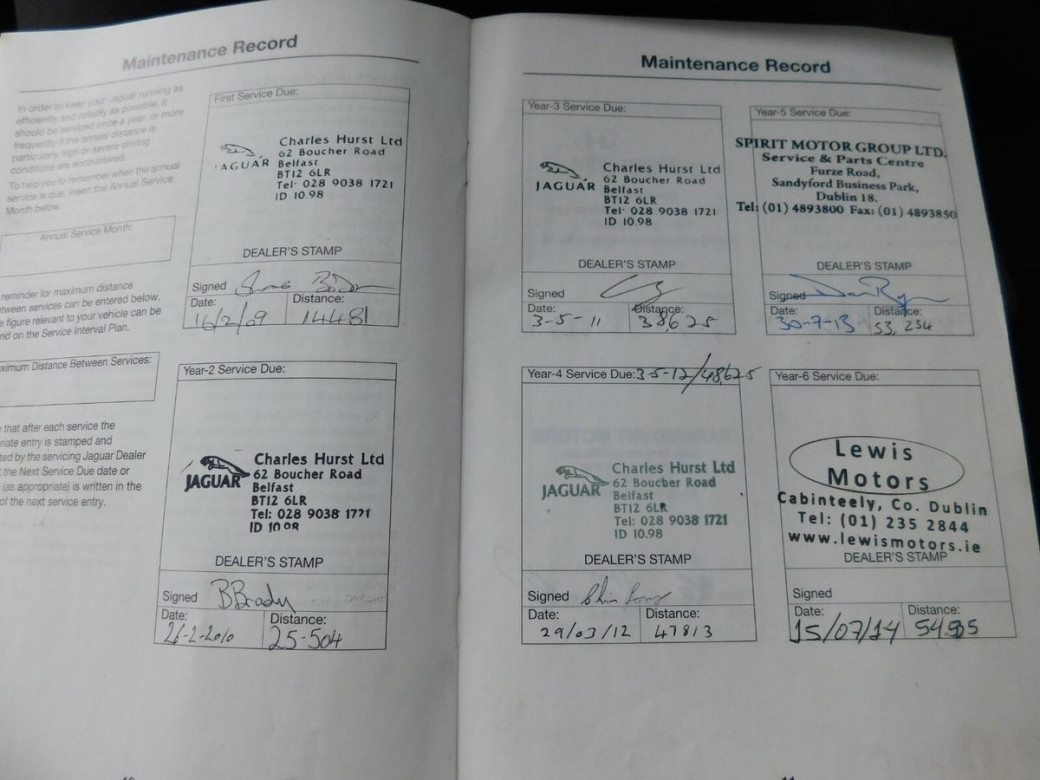 Maintenance Record
In order to keep your Jaguar running as
efficiently and reliably as possible, it
should be serviced once a year, or more
frequently if the annual distance is
particularly high or severe driving
conditions are encountered.
To help you to remember when the annual
service is due, insert the Annual Service
Month below.
Annual Service Month:
reminder for maximum distance
between services can be entered below.
figure relevant to your vehicle can be
on the Service Interval Plan.
Maximum Distance Between Services:
that after each service the
entry is stamped and
by the servicing Jaguar Dealer
the Next Service Due date or
(as appropriate) is written in the
of the next service entry.
First Service Due:
JAGUAR
Charles Hurst Ltd
62 Boucher Road
Belfast
BT12 6LR
Tel: 028 9038 1721
ID 10.98
DEALER'S STAMP
Signed
Date: Distance:
16/2/09 14481
Year-2 Service Due:
JAGUAR
Charles Hurst Ltd
62 Boucher Road
Belfast
BT12 6LR
Tel: 028 9038 1721
ID 10.98
DEALER'S STAMP
Signed BBrady
Date: Distance:
26-2-2010 25-504
Maintenance Record
Year-3 Service Due:
JAGUAR
Charles Hurst Ltd
62 Boucher Road
Belfast
BT12 6LR
Tel: 028 9038 1721
ID 10.98
DEALER'S STAMP
Signed
Date: Distance:
3-5-11 38625
Year-4 Service Due: 3-5-12/48625
JAGUAR
Charles Hurst Ltd
62 Boucher Road
Belfast
BT12 6LR
Tel: 028 9038 1721
ID 10.98
DEALER'S STAMP
Signed
Date: Distance:
29/03/12 47813
Year-5 Service Due:
SPIRIT MOTOR GROUP LTD.
Service & Parts Centre
Furze Road,
Sandyford Business Park,
Dublin 18.
Tel: (01) 4893800 Fax: (01) 4893850
DEALER'S STAMP
Signed
Date: Distance:
30-7-13 53,254
Year-6 Service Due:
Lewis
Motors
Cabinteely, Co. Dublin
Tel: (01) 235 2844
www.lewismotors.ie
DEALER'S STAMP
Signed
Date: Distance:
15/07/14